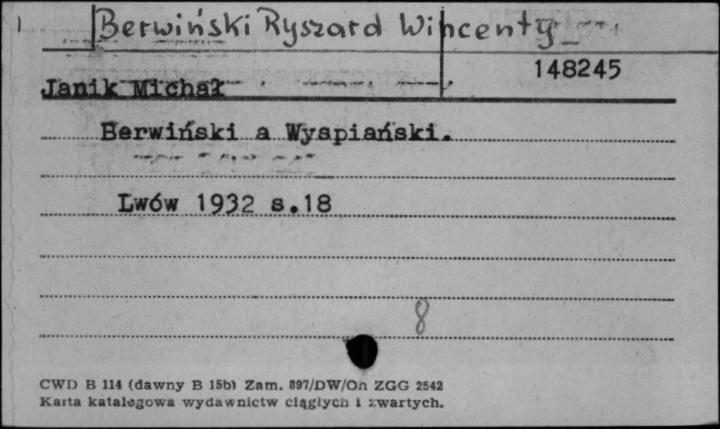 Berwiński Ryszard Wincenty
148245
Janik Michał
Berwiński a Wyspiański.
Lwów 1932 s.18
8
CWD B 114 (dawny B 15b) Zam. 897/DW/On ZGG 2542
Karta katalogowa wydawnictw ciągłych i zwartych.